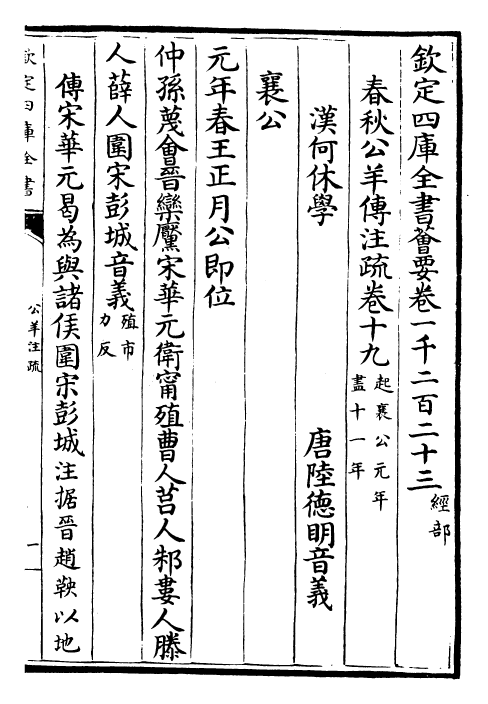 欽定四庫全書薈要卷一千二百二十三 經部
春秋公羊傳注疏卷十九 起襄公元年盡十一年
漢何休學 唐陸德明音義
襄公
元年春王正月公即位
仲孫蔑會晉欒黶宋華元衛甯殖曹人莒人邾婁人滕
人薛人圍宋彭城音義 殖市力反
傳宋華元曷為與諸侯圍宋彭城注据晉趙鞅以地
欽定四庫全書
公羊注疏
一